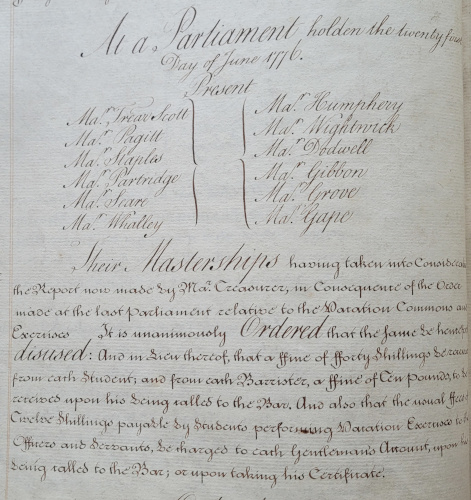 At a Parliament holden the twenty four
Day of June 1776.
Present
Mar. Frear Scott
Mar. Pagitt
Mar. Staples
Mar. Partridge
Mar. Seare
Mar. Whalley
Mar. Humphery
Mar. Wightwick
Mar. Dodwell
Mar. Gibbon
Mar. Grove
Mar. Gape
Their Masterships having taken into Considera
the Report now made by Mar. Treasurer, in Consequence of the Order
made at the last Parliament relative to the Vacation Commons and
Exercises It is unanimously Ordered that the same be hencef
disused: And in Lieu thereof, that a ffine of fforty Shillings be rece
from each Student; and from each Barrister, a ffine of Ten Pounds, to be
received upon his being called to the Bar. And also that the usual ffees
Twelve Shillings payable by Students performing Vacation Exercises to
Officers and Servants, be charged to each Gentleman's Account, upon his
being called to the Bar; or upon taking his Certificate.